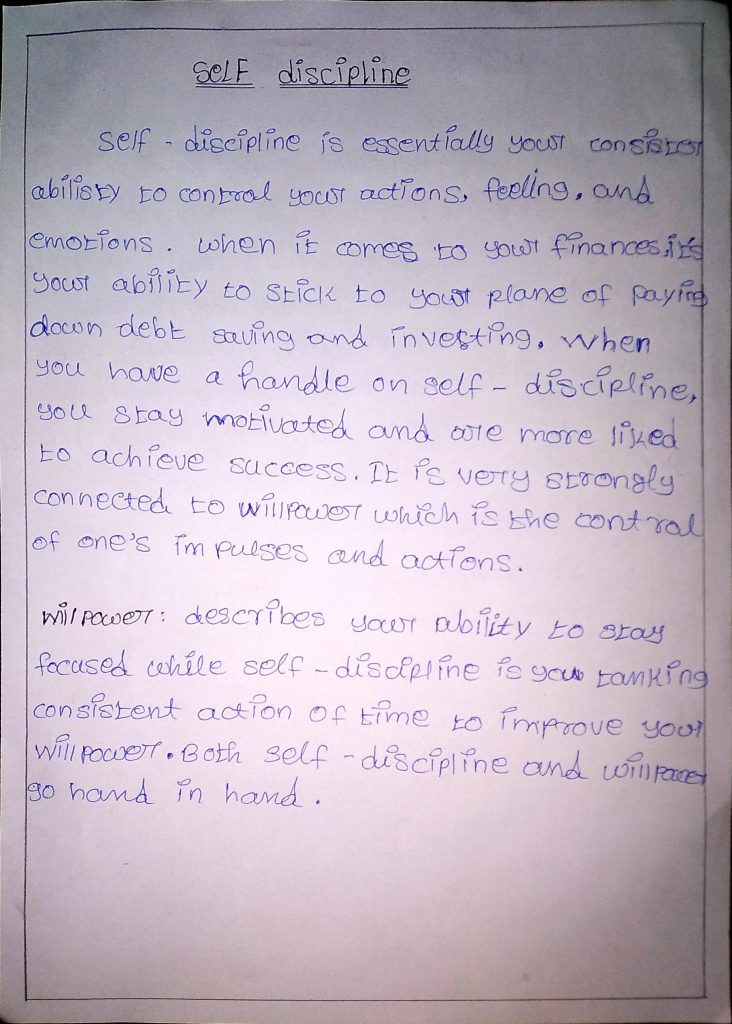 SELF discipline
Self - discipline is essentially your consister
abilisty to control your actions, feeling, and
emotions. When it comes to your finances, it's
your ability to stick to your plane of paying
down debt saving and investing. When
you have a handle on self - discipline,
you stay motivated and are more liked
to achieve success. It is very strongly
connected to willpower which is the control
of one's impulses and actions.
Willpower: describes your ability to stay
focused while self - discipline is you tanking
consistent action of time to improve your
willpower. Both self - discipline and willpower
go hand in hand.